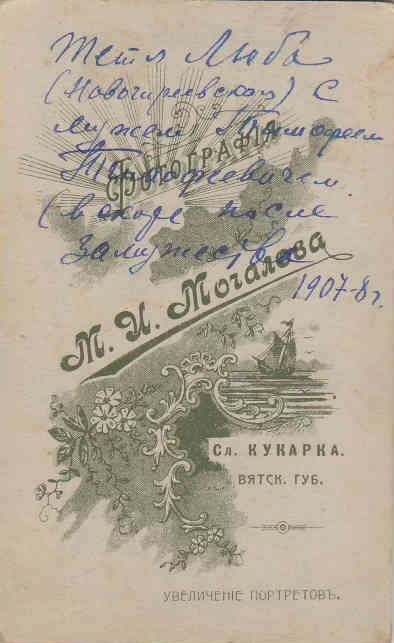 Тетя Люба
(Новогиреевская) с
мужем Тимофеем
Тимофеевичем.
(вскоре после
замужества
1907-8 г.
ФОТОГРАФІЯ
М. И. Мочалова
Сл. КУКАРКА.
ВЯТСК. ГУБ.
УВЕЛИЧЕНІЕ ПОРТРЕТОВЪ.